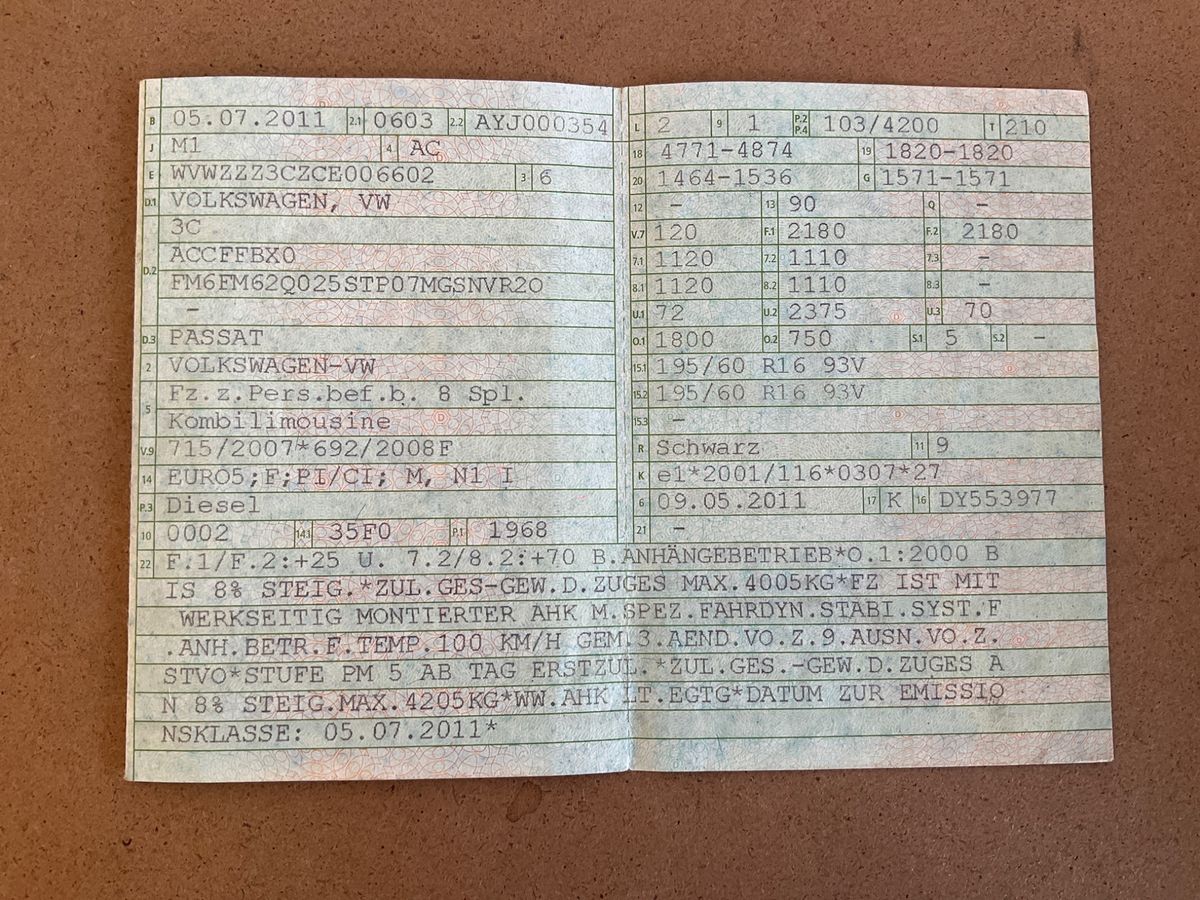 B 05.07.2011 2.1 0603 2.2 AYJ000354
J M1 4 AC
E WVWZZZ3CZCE006602 3 6
D.1 VOLKSWAGEN, VW
3C
D.2 ACCFFBX0
FM6FM62Q025STP07MGSNVR2O
–
D.3 PASSAT
2 VOLKSWAGEN-VW
5 Fz.z.Pers.bef.b. 8 Spl.
Kombilimousine
V.9 715/2007*692/2008F
14 EURO5;F;PI/CI; M, N1 I
P.3 Diesel
10 0002 14.1 35F0 P.1 1968
L 2 9 1 P.2 P.4 103/4200 T 210
18 4771-4874 19 1820-1820
20 1464-1536 G 1571-1571
12 – 13 90 Q –
V.7 120 F.1 2180 F.2 2180
7.1 1120 7.2 1110 7.3 –
8.1 1120 8.2 1110 8.3 –
U.1 72 U.2 2375 U.3 70
O.1 1800 O.2 750 S.1 5 S.2 –
15.1 195/60 R16 93V
15.2 195/60 R16 93V
15.3 –
R Schwarz 11 9
K e1*2001/116*0307*27
6 09.05.2011 17 K 16 DY553977
21 –
22 F.1/F.2:+25 U. 7.2/8.2:+70 B.ANHÄNGEBETRIEB*O.1:2000 B
IS 8% STEIG.*ZUL.GES-GEW.D.ZUGES MAX.4005KG*FZ IST MIT
WERKSEITIG MONTIERTER AHK M.SPEZ.FAHRDYN.STABI.SYST.F
.ANH.BETR.F.TEMP.100 KM/H GEM.3.AEND.VO.Z.9.AUSN.VO.Z.
STVO*STUFE PM 5 AB TAG ERSTZUL.*ZUL.GES.-GEW.D.ZUGES A
N 8% STEIG.MAX.4205KG*WW.AHK LT.EGTG*DATUM ZUR EMISSIO
NSKLASSE: 05.07.2011*